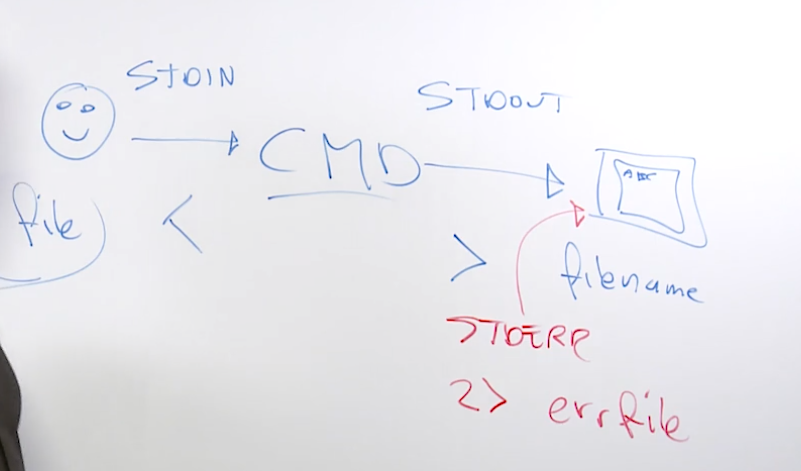 STDIN
STDOUT
CMD
ABC
file <
> filename
STDERR
2> errfile